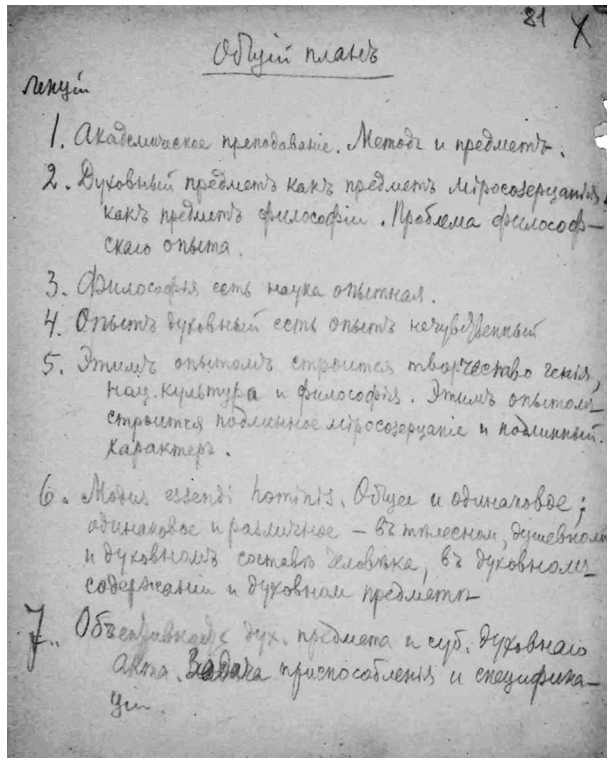 81
Общій планъ
лекцій
1. Академическое преподаваніе. Методъ и предметъ.
2. Духовный предметъ какъ предметъ міросозерцанія,
какъ предметъ философіи. Проблема философ-
скаго опыта.
3. Философія есть наука опытная.
4. Опытъ духовный есть опытъ нечувственный
5. Этимъ опытомъ строится творчество генія,
нац. культура и философія. Этимъ опытомъ
строится подлинное міросозерцаніе и подлинный
характеръ.
6. Modus essendi hominis. Общее и одинаковое;
одинаковое и различное – въ тѣлесном, душевномъ
и духовномъ составѣ человѣка, въ духовномъ
содержаніи и духовном предметѣ
7. Объективность дух. предмета и суб. духовнаго
акта. Задача приспособленія и специфика-
ціи.